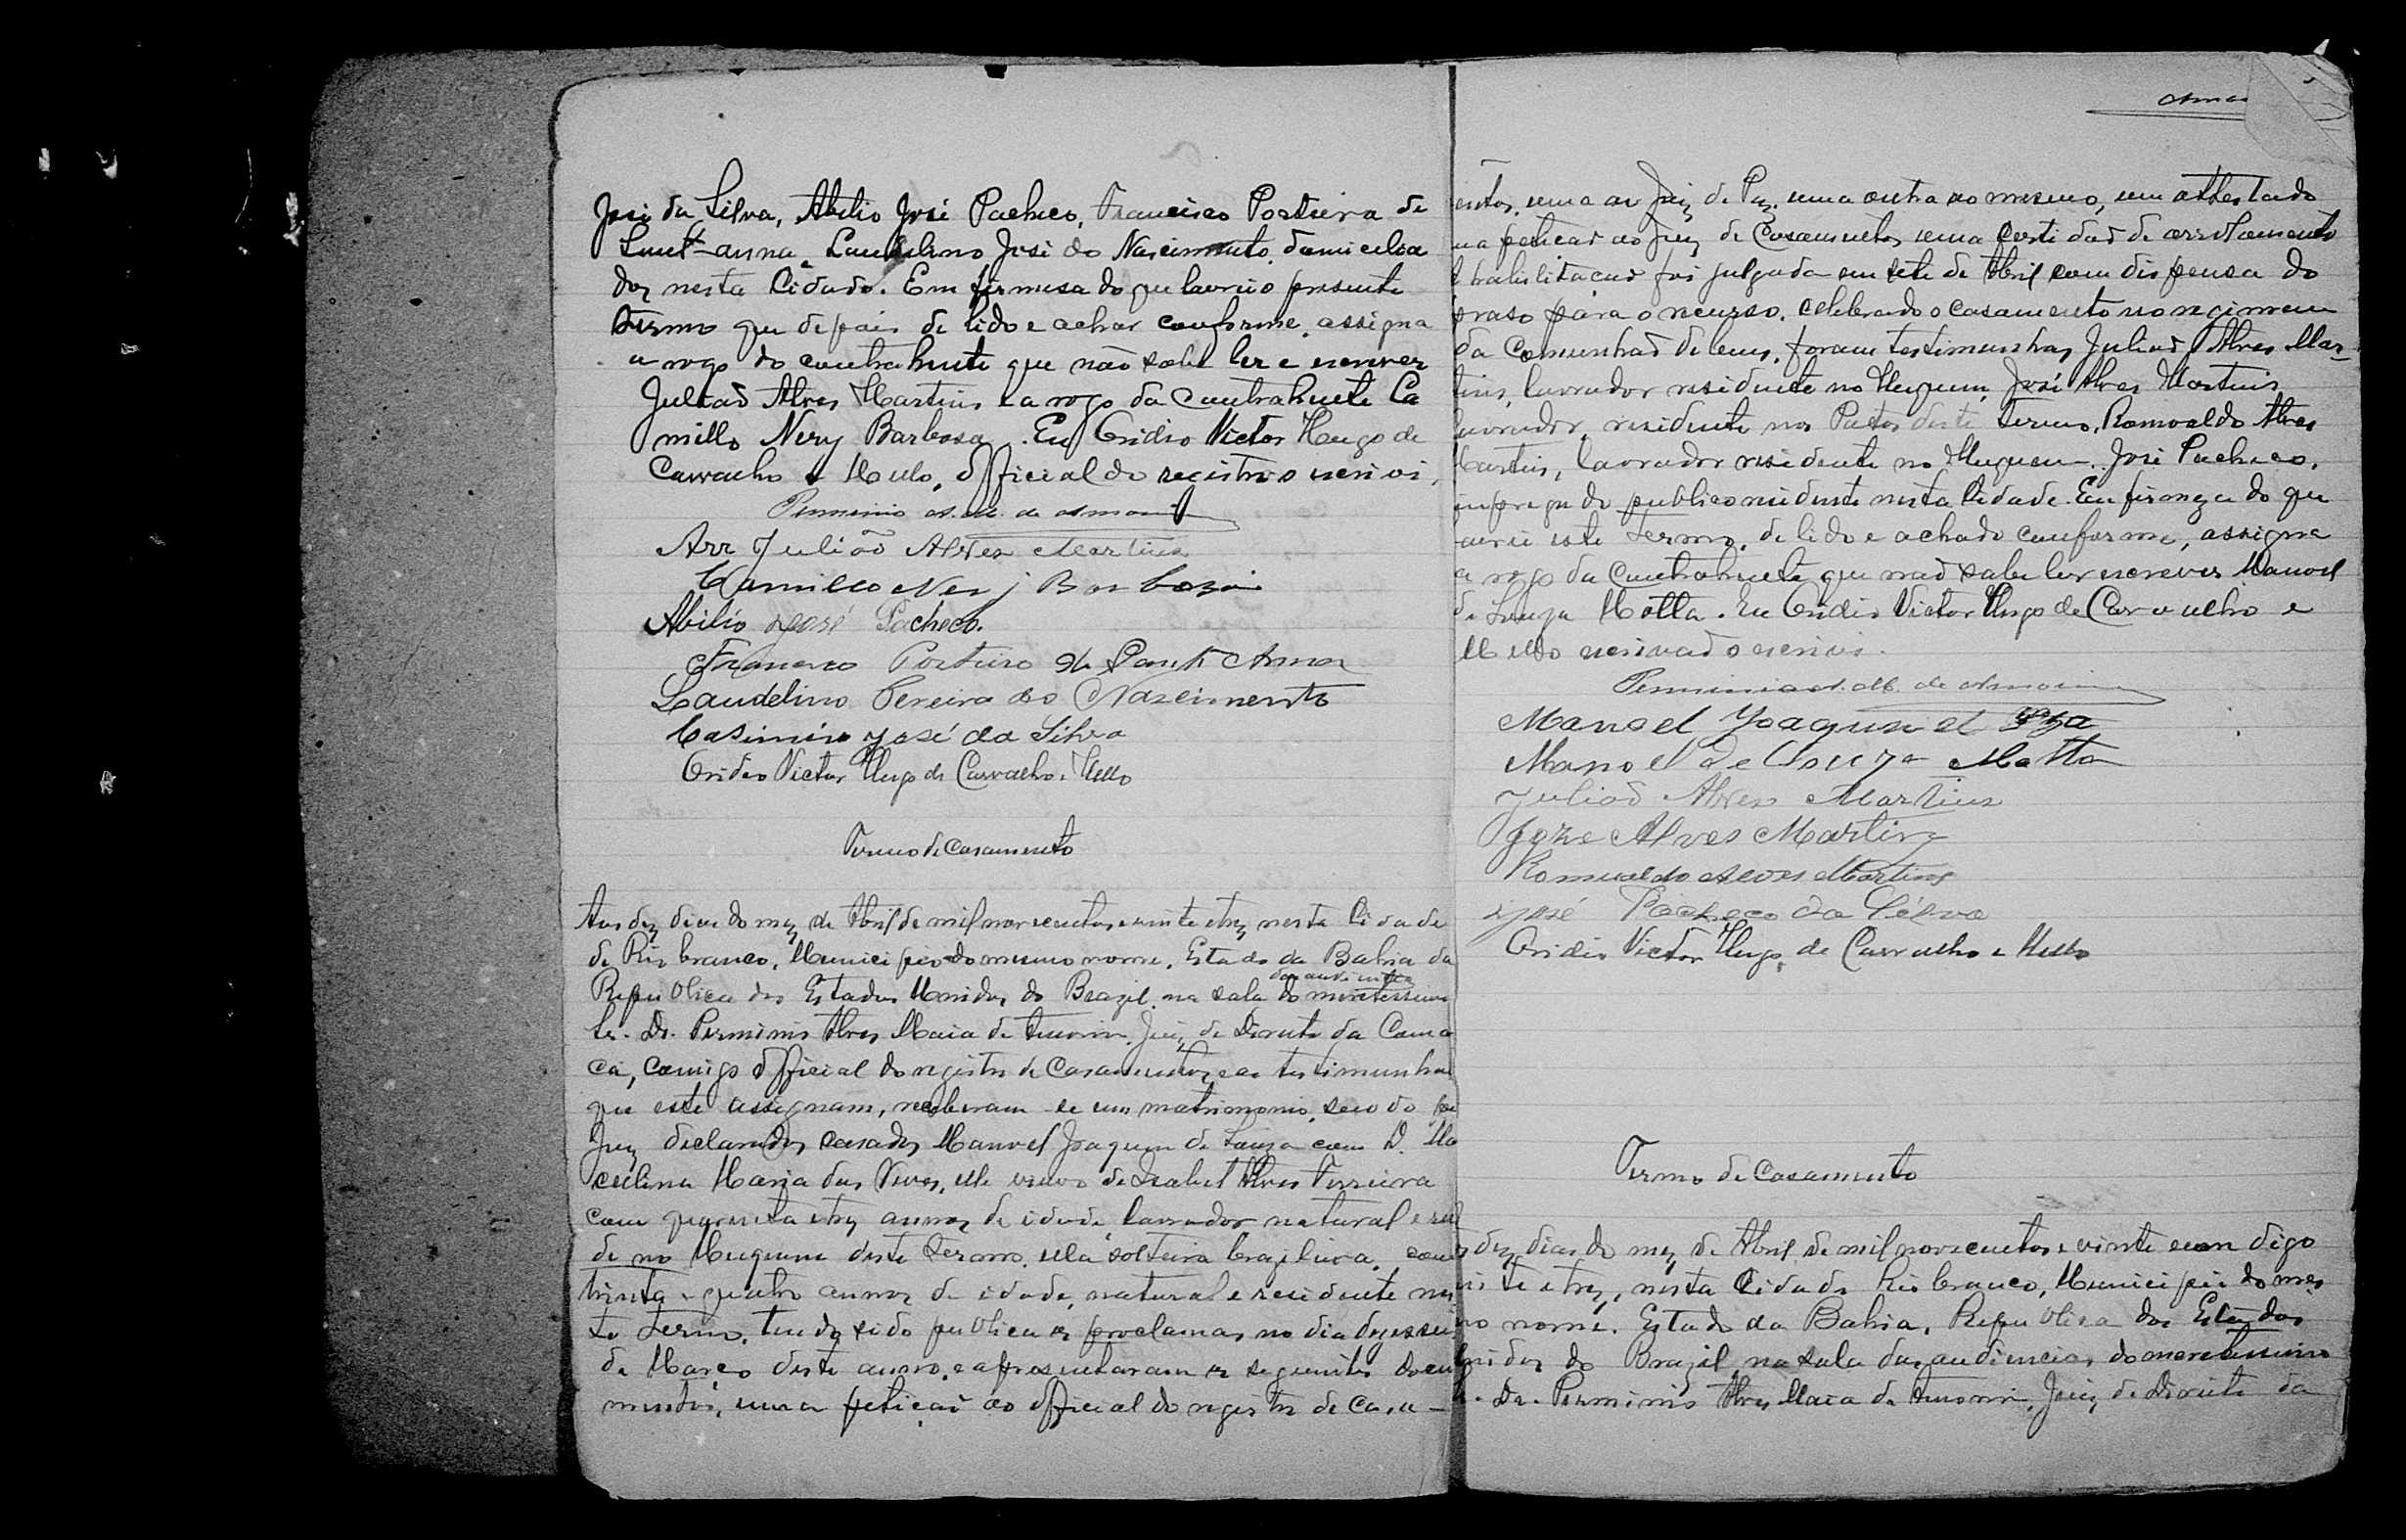 José da Silva, Abilio José Pacheco, Francisco Porteiro de
Sant'anna, Laudelino José do Nascimento, domicilia
dos nesta Cidade. Em firmesa do que lavrei o presente
termo que depois de lido e achar conforme, assigna
a rogo do contrahente que não sabe ler e escrever
Julião Alves Martins e a rogo da contrahente Ca
millo Nery Barbosa. Eu Ovidio Victor Hugo de
Carvalho e Mello, official do registro o escrevi,
Perminio A. M. de Amorim
Arr Julião Alves Martins
Camillo Nery Barboza
Abilio José Pacheco.
Francisco Porteiro de Sant Anna
Laudelino Pereira do Nascimento
Casimiro José da Silva
Ovidio Victor Hugo de Carvalho e Mello
Termo de Casamento
Aos dez dias do mez de Abril de mil novecentos e vinte e trez nesta Cidade
de Rio branco, Municipio do mesmo nome, Estado da Bahia da
das audiencias
Republica dos Estados Unidos do Brazil, na sala do meretissimo
Sr. Dr. Perminio Alves Maia de Amorim, Juiz de Direito da Coma
ca, comigo official do registro de Casamentos e as testimunhas
que este assignam, receberam-se em matrimonio, sendo pe
Juiz declarados casados Manoel Joaquim de Souza com D. Ma
celina Maria das Neves, elle viuvo de Izabel Alves Ferreira
com quarenta e trez annos de idade, lavrador natural e resi
de no Muquem deste termo, ella solteira brazileira, com
trinta e quatro annos de idade, natural e residente nes
te termo. Tendo sido publica os proclamas no dia dezessei
de Março deste anno, e apresentaram os seguintes docu
mentos, uma petição ao official do registro de Casa-
Amor
entos, uma ao Juiz de Paz, uma outra ao mesmo, um attestado
ma peticão ao Juiz de Casamentos uma certidão de arrolamento
e habilitacão foi julgada em sete de Abril com dispensa do
praso para o recurso, celebrado o casamento no regimem
da Comunhão de bens, foram testimunhas Julião Alves Mar-
tins, lavrador residente no Muquem, José Alves Martins
lavrador, residente nos Patos deste termo, Romualdo Alves
Martins, lavrador residente no Muquem, José Pacheco,
empregado publico residente nesta Cidade. Em firmeza do que
lavrei este termo, de lido e achado conforme, assigna
a rogo da contrahente que não sabe ler escrever Manoel
de Souza Motta. Eu Ovidio Victor Hugo de Carvalho e
Mello escrivão o escrevi.
Perminio A. M. de Amorim
Manoel Joaquim d Sza
Manoel de Souza Motta
Julião Alves Martins
Joze Alves Martins
Romualdo Alves Martins
José Pacheco da Silva
Ovidio Victor Hugo de Carvalho e Mello
Termo de Casamento
s dez dias do mez de Abril de mil novecentos e vinte e um digo
vinte e trez, nesta Cidade Rio branco, Municipio do mes
mo nome, Estado da Bahia, Republica dos Estados
Unidos do Brazil, na sala das audiencias do meretissimo
Sr. Dr. Perminio Alves Maia de Amorim, Juiz de Direito da